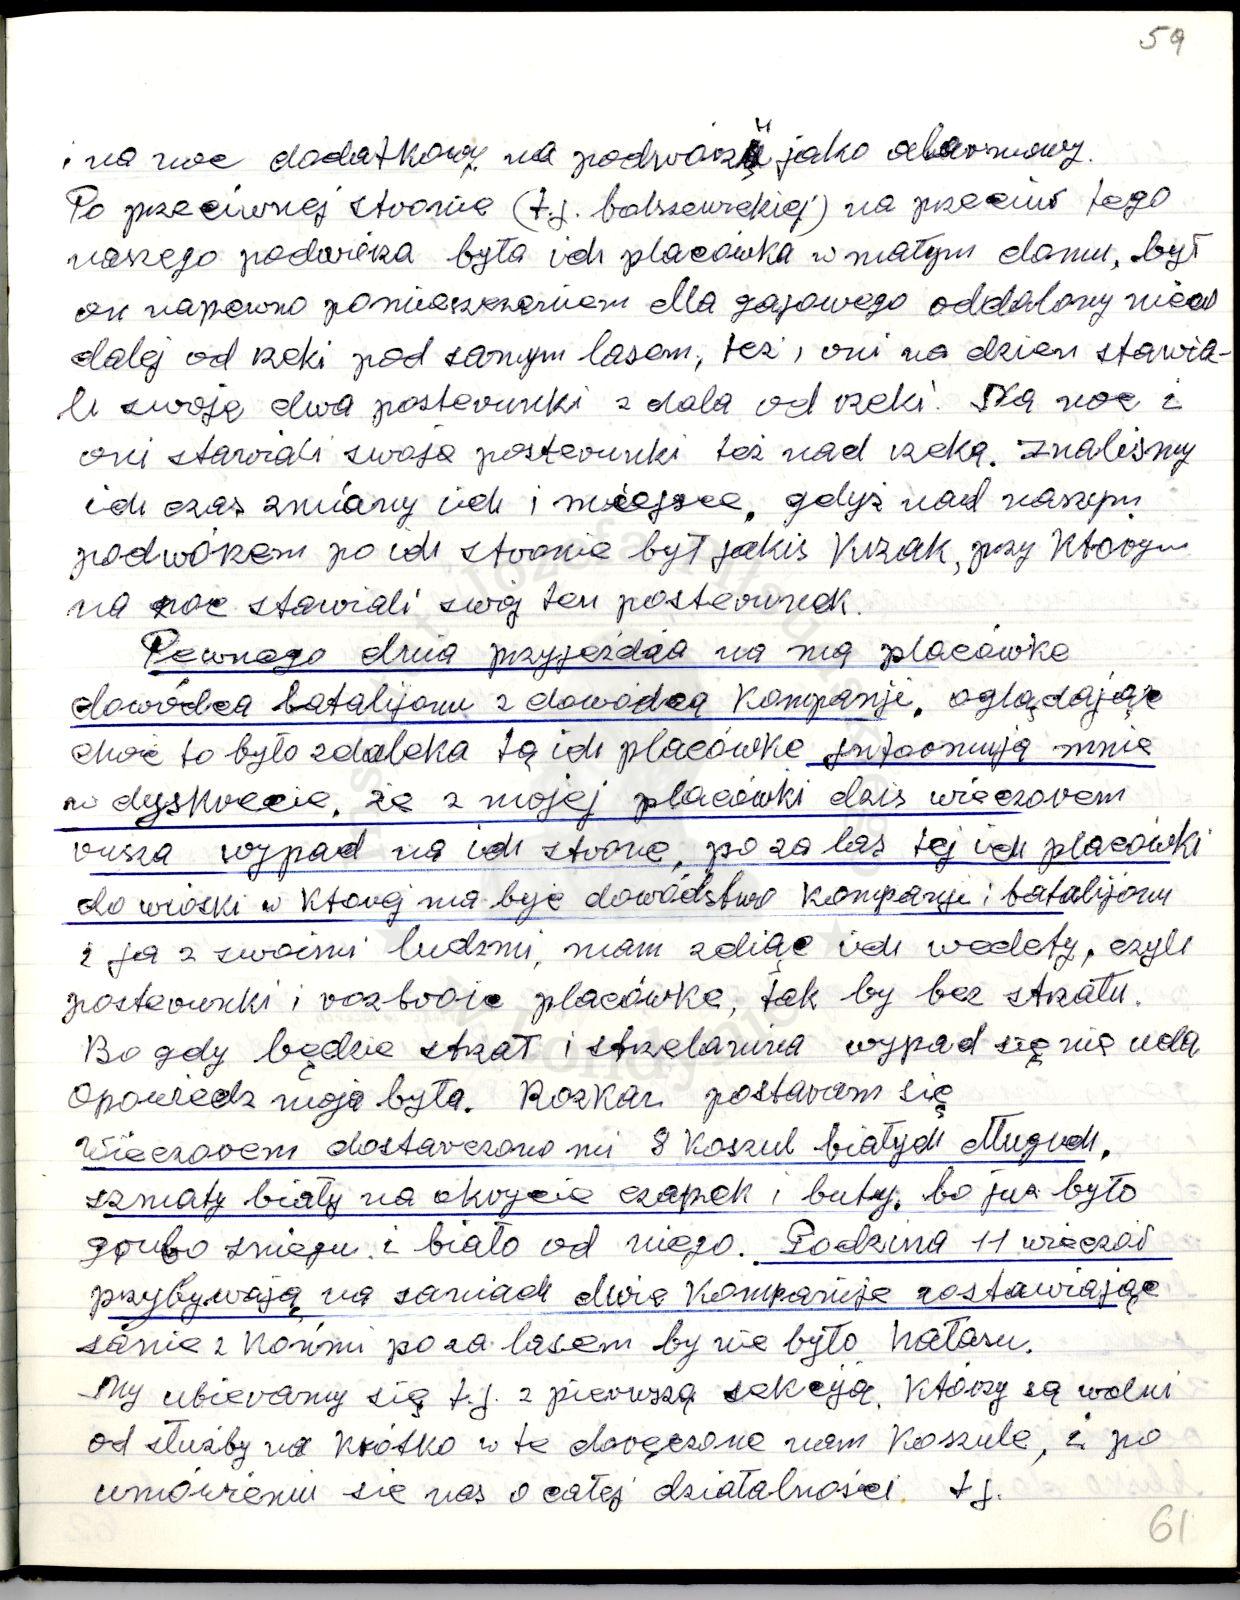 59
i na noc dodatkowy na podwórzu jako alarmowy.
Po przeciwnej stronie (t.j. bolszewickiej) na przeciw tego
naszego podwórza była ich placówka w małym domu, był
on napewno pomieszczeniem dla gajowego oddalony nieco
dalej od rzeki pod samym lasem, też i oni na dzien stawia-
li swoje dwa posterunki z dala od rzeki. Na noc i
oni stawiali swoje posterunki też nad rzeką. Znalismy
ich czas zmiany ich i miejsce, gdyż nad naszym
podwórzem po ich stronie był jakis krzak, przy którym
na noc stawiali swój ten posterunek.
Pewnego dnia przyjeżdża na mą placówke
dowódca batalijonu z dowódcą kompanji, oglądając
choć to było zdaleka tą ich placówke informują mnie
w dyskrecie, że z mojej placówki dzis wieczorem
rusza wypad na ich strone, po za las tej ich placówki
do wioski w ktorej ma być dowództwo kompanji i batalijonu
i ja z swoimi ludzmi, mam zdiąc ich wedety, czyli
posterunki i rozbroic placówke, tak by bez strzału.
Bo gdy będzie strzał i strzelanina wypad się nie uda
Opowiedz moja była. Rozkaz postaram się
Wieczorem dostarczono mi 8 koszul białych długich,
szmaty biały na okrycie czapek i buty. bo już było
grubo sniegu i biało od niego. Godzina 11 wieczór
przybywają na saniach dwie kompanije zostawiając
sanie z końmi po za lasem by nie było hałasu.
My ubieramy się t.j. z pierwszą sekcyją, którzy są wolni
od służby na krótko w te doręczone nam koszule, i po
umówieniu sie nas o całej działalności t.j.
61